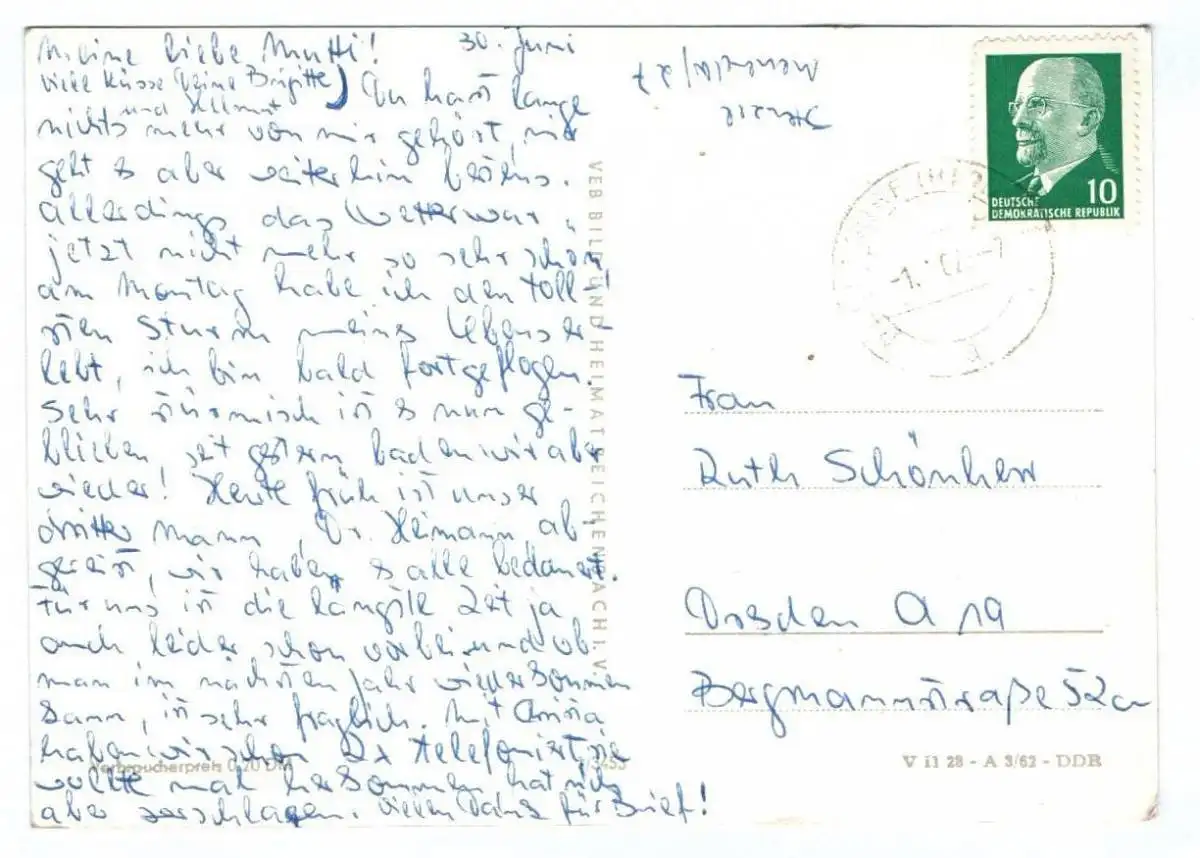 Meine liebe Mutti! 30. Juni
viele Küsse Deine Brigitte
und Hellmut
Du hast lange
nichts mehr von mir gehört, mir
geht es aber weiterhin bestens.
Allerdings das Wetter war
jetzt nicht mehr so sehr schön,
am Montag habe ich den toll-
sten Sturm meines Lebens er
lebt, ich bin bald fortgeflogen.
Sehr stürmisch ist es nun ge-
blieben, seit gestern baden wir aber
wieder! Heute früh ist unser
dritter Mann, Dr. Heimann ab
gereist, wir haben es alle bedauert.
Für uns ist die längste Zeit ja
auch leider schon vorbei und ob
man im nächsten Jahr wiederkommen
kann, ist sehr fraglich. Mit
haben wir schon 2x telefoniert, sie
wollte mal herkommen, hat sich
aber zerschlagen. Vielen Dank für Brief!
Verbraucherpreis 0,20 DM
3453
VEB BILD UND HEIMAT REICHENBACH I. V.
10
DEUTSCHE
DEMOKRATISCHE REPUBLIK
Frau
Ruth Schönherr
Dresden A 19
Bergmannstraße 52a
V 11 28 - A 3/62 - DDR